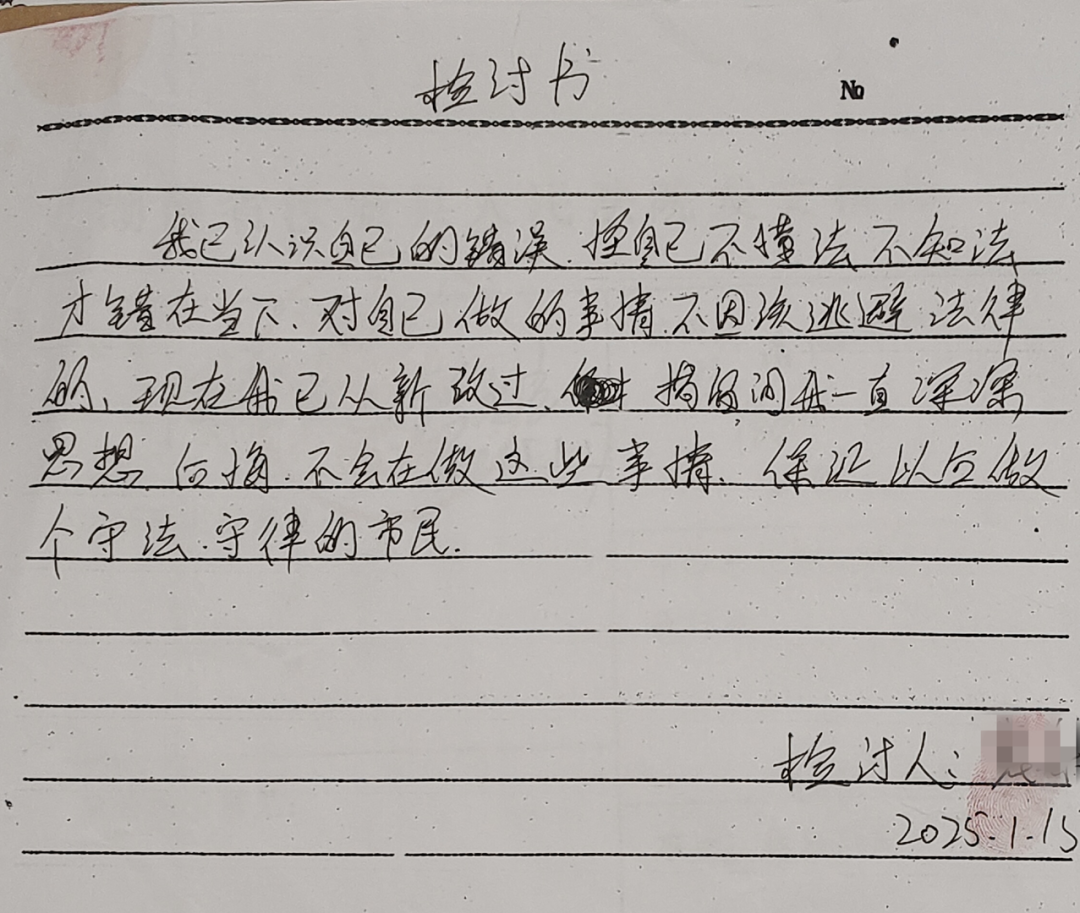 检讨书
No
我已认识自己的错误.怪自己不懂法不知法
才错在当下、对自己做的事情.不因该逃避法律
的、现在我已从新改过、期间我一直深深
思想后悔.不会在做这些事情.保证以后做
个守法.守律的市民.
检讨人:
2025.1.15